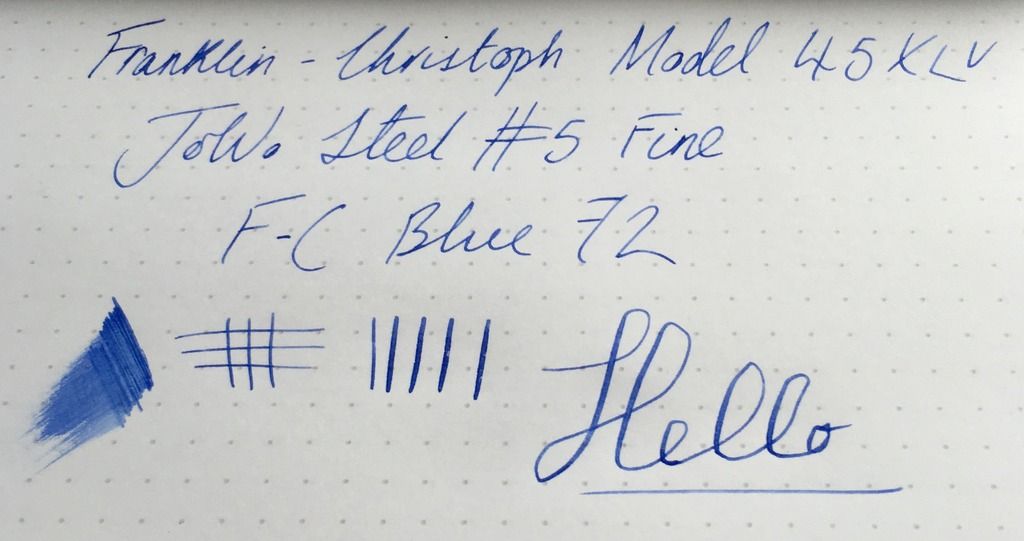 Franklin-Christoph Model 45 XLV
JoWo Steel #5 Fine
F-C Blue 72
Hello